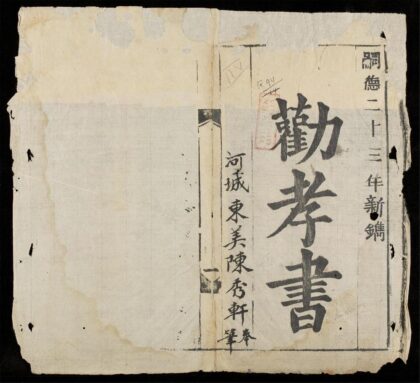 嗣德二十三年新鐫
勸孝書
河城東美陳秀軒奉筆
一